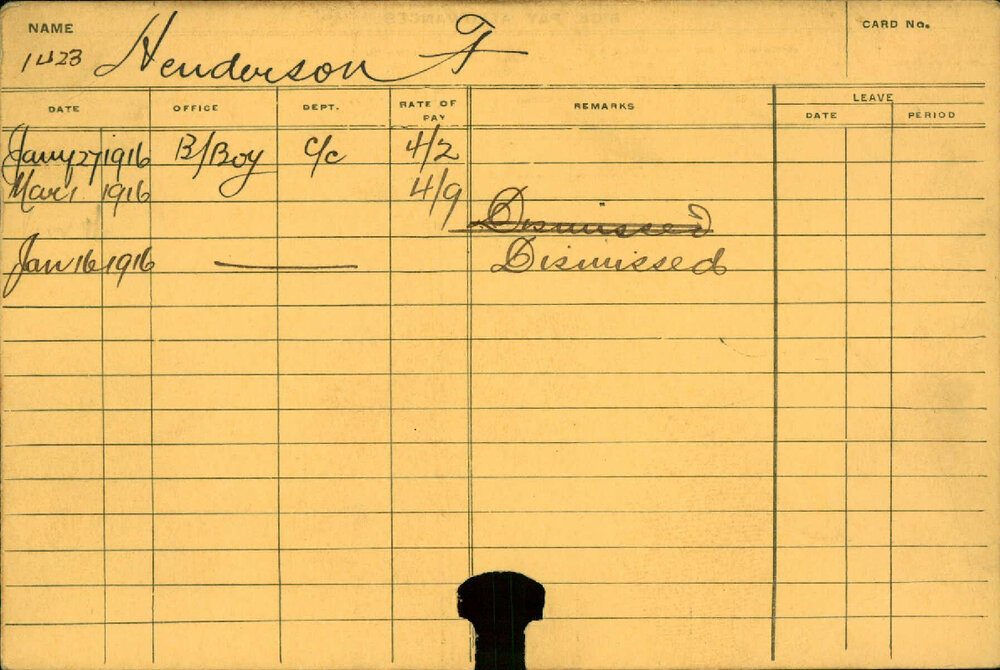 NAME
CARD No.
1423 Henderson F
DATE OFFICE DEPT. RATE OF PAY REMARKS LEAVE
DATE PERIOD
Jany 27 1916 B/Boy C/c 4/2
Mar 1 1916 4/9
Dismissed
Jan 16 1916 Dismissed